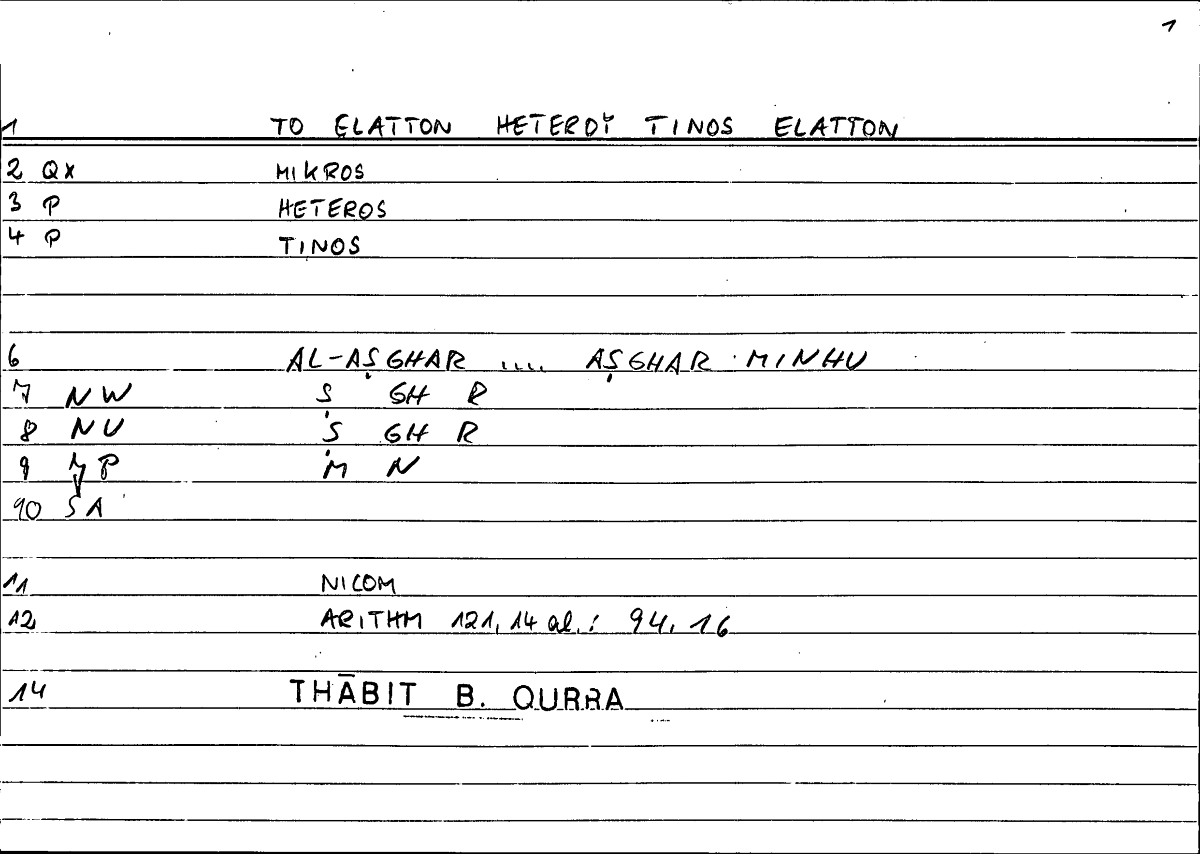 1
1 TO ELATTON HETEROY TINOS ELATTON
2 QX MIKROS
3 P HETEROS
4 P TINOS
6 AL-AṢGHAR .... AṢGHAR MINHU
7 NW Ṣ GH R
8 NU Ṣ GH R
9 P M N
10 SA
11 NICOM
12 ARITHM 121,14 al.: 94,16
14 THĀBIT B. QURRA